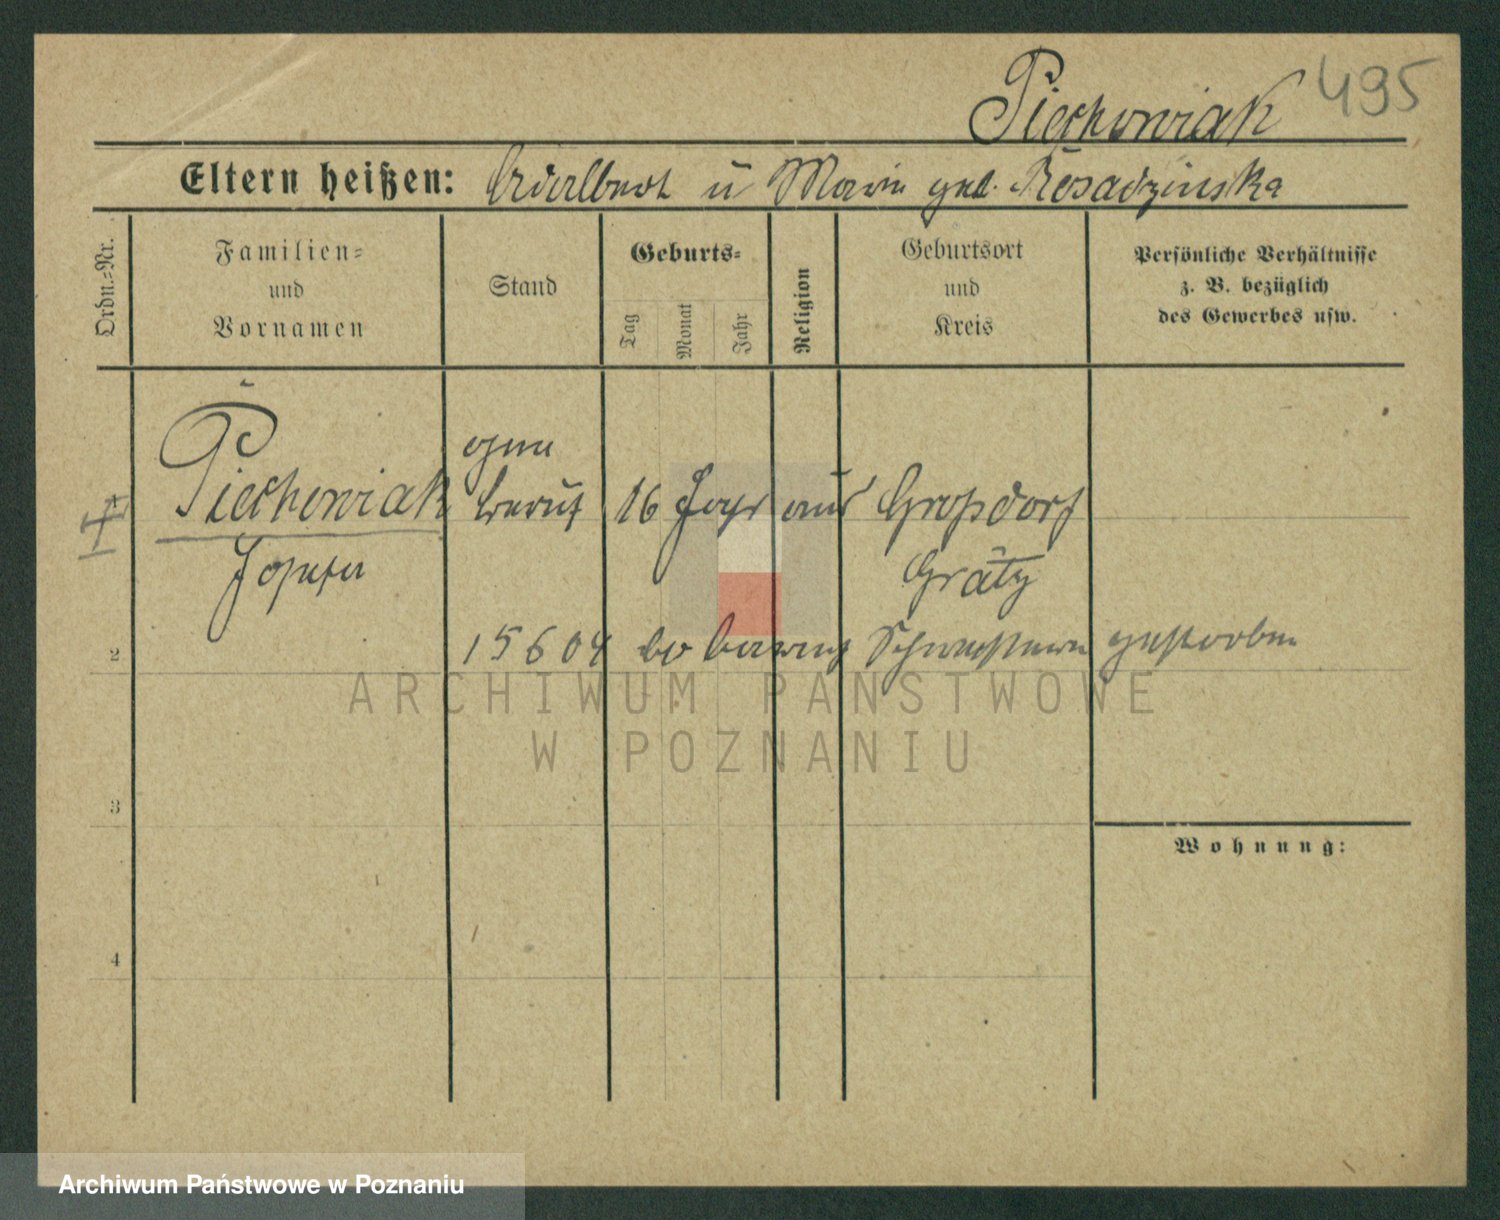 Piechowiak 495
Eltern heißen: Adalbert u Marie geb. Rosadzinska
Ordn.=Nr.
Familien=
und
Vornamen
Stand
Geburts=
Tag
Monat
Jahr
Religion
Geburtsort
und
Kreis
Persönliche Verhältnisse
z. B. bezüglich
des Gewerbes usw.
Piechowiak
Josefa
ohne
beruf 16 Jahr aus Großdorf
Grätz
2
15 6 04 barmh Schwestern gestorben
ARCHIWUM PAŃSTWOWE
W POZNANIU
3
Wohnung:
4
Archiwum Państwowe w Poznaniu